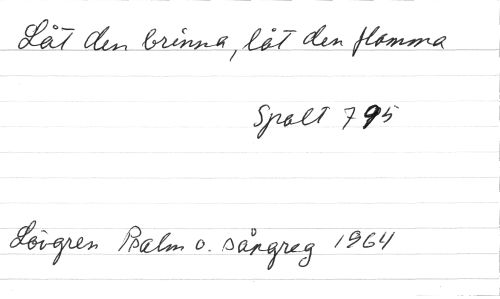 Låt den brinna, låt den flamma
Spalt 795
Lövgren Psalm o. sångreg 1964